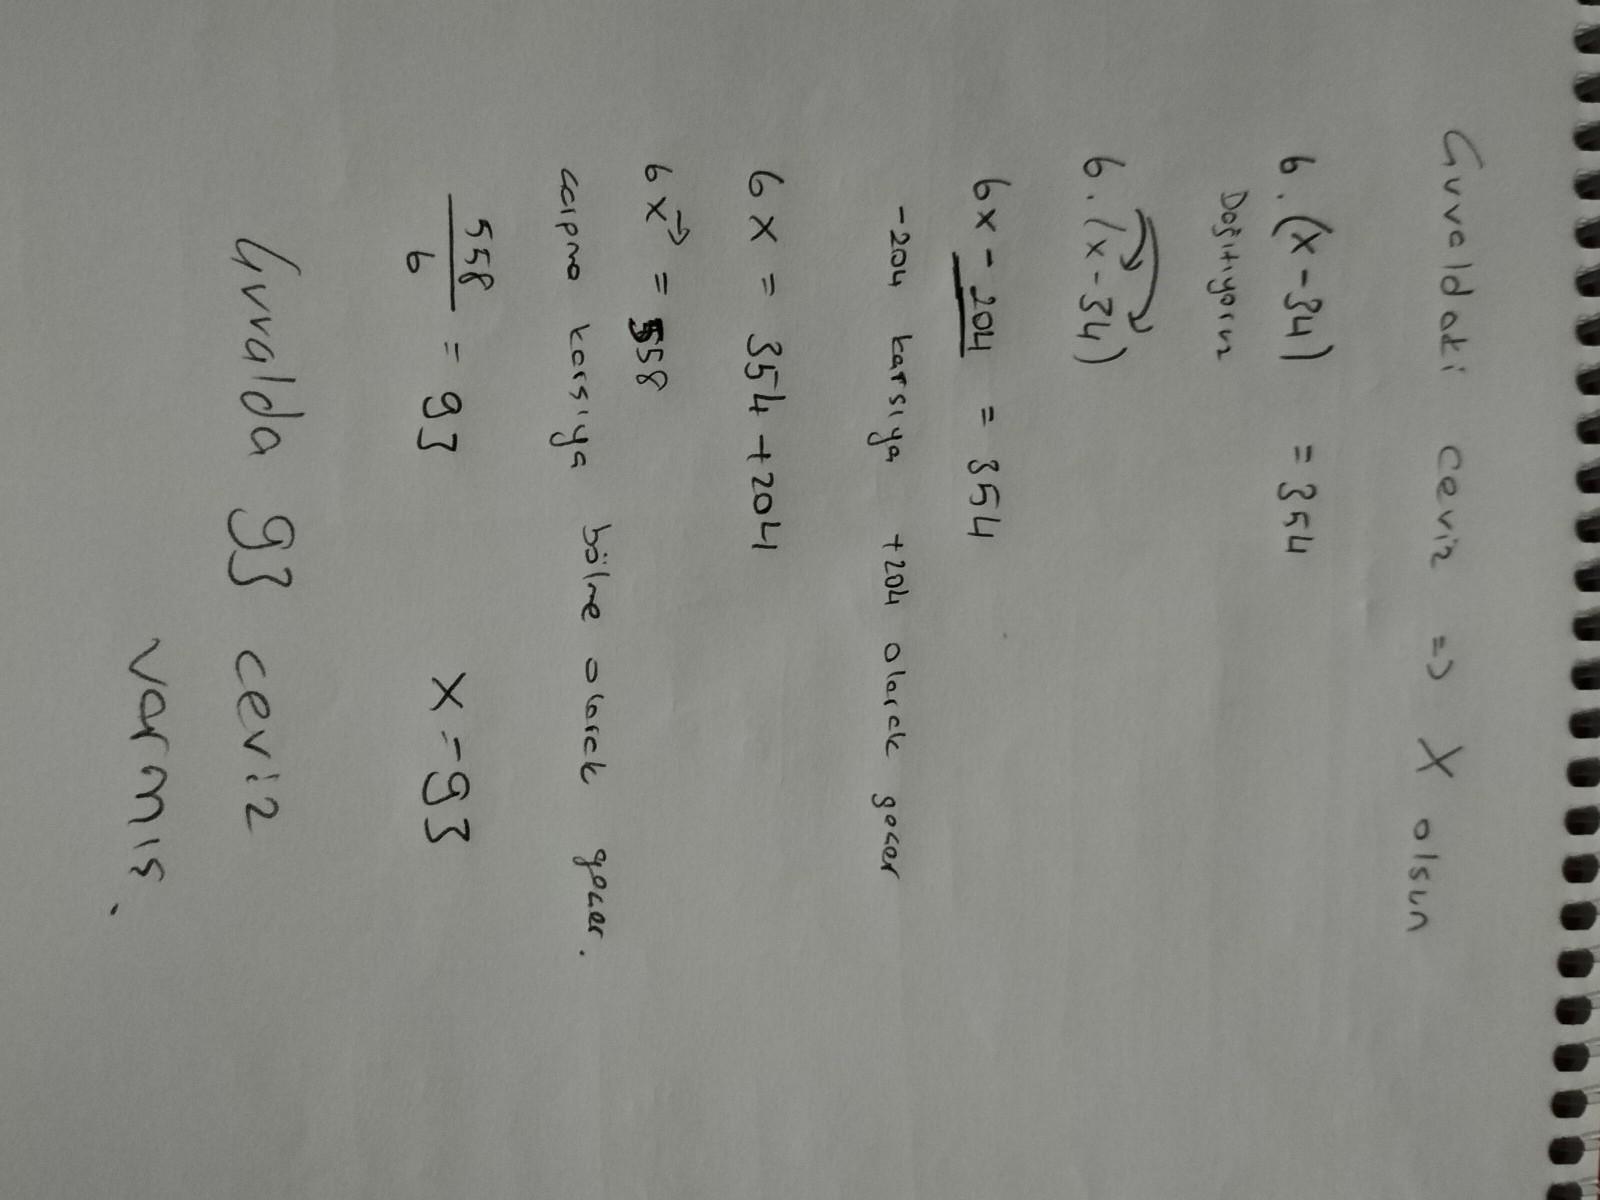 Çuvaldaki ceviz => X olsun
6.(x-34) = 354
Dağıtıyoruz
6.(x-34)
6x - 204 = 354
-204 karsıya +204 olarak gecer
6x = 354+204
6x = 558
carpma karsıya bölme olarak gecer.
558/6 = 93 x=93
Çuvalda 93 ceviz
varmıs.